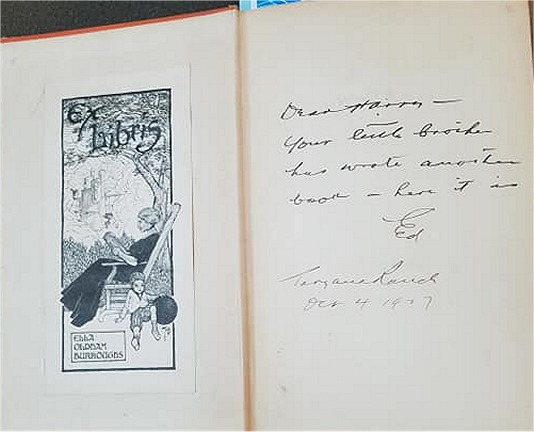 Ex
Libris
ELLA
OLDHAM
BURROUGHS
Dear Harry —
Your little brother
has wrote another
book — here it is
Ed
Tarzana Ranch
Oct 4